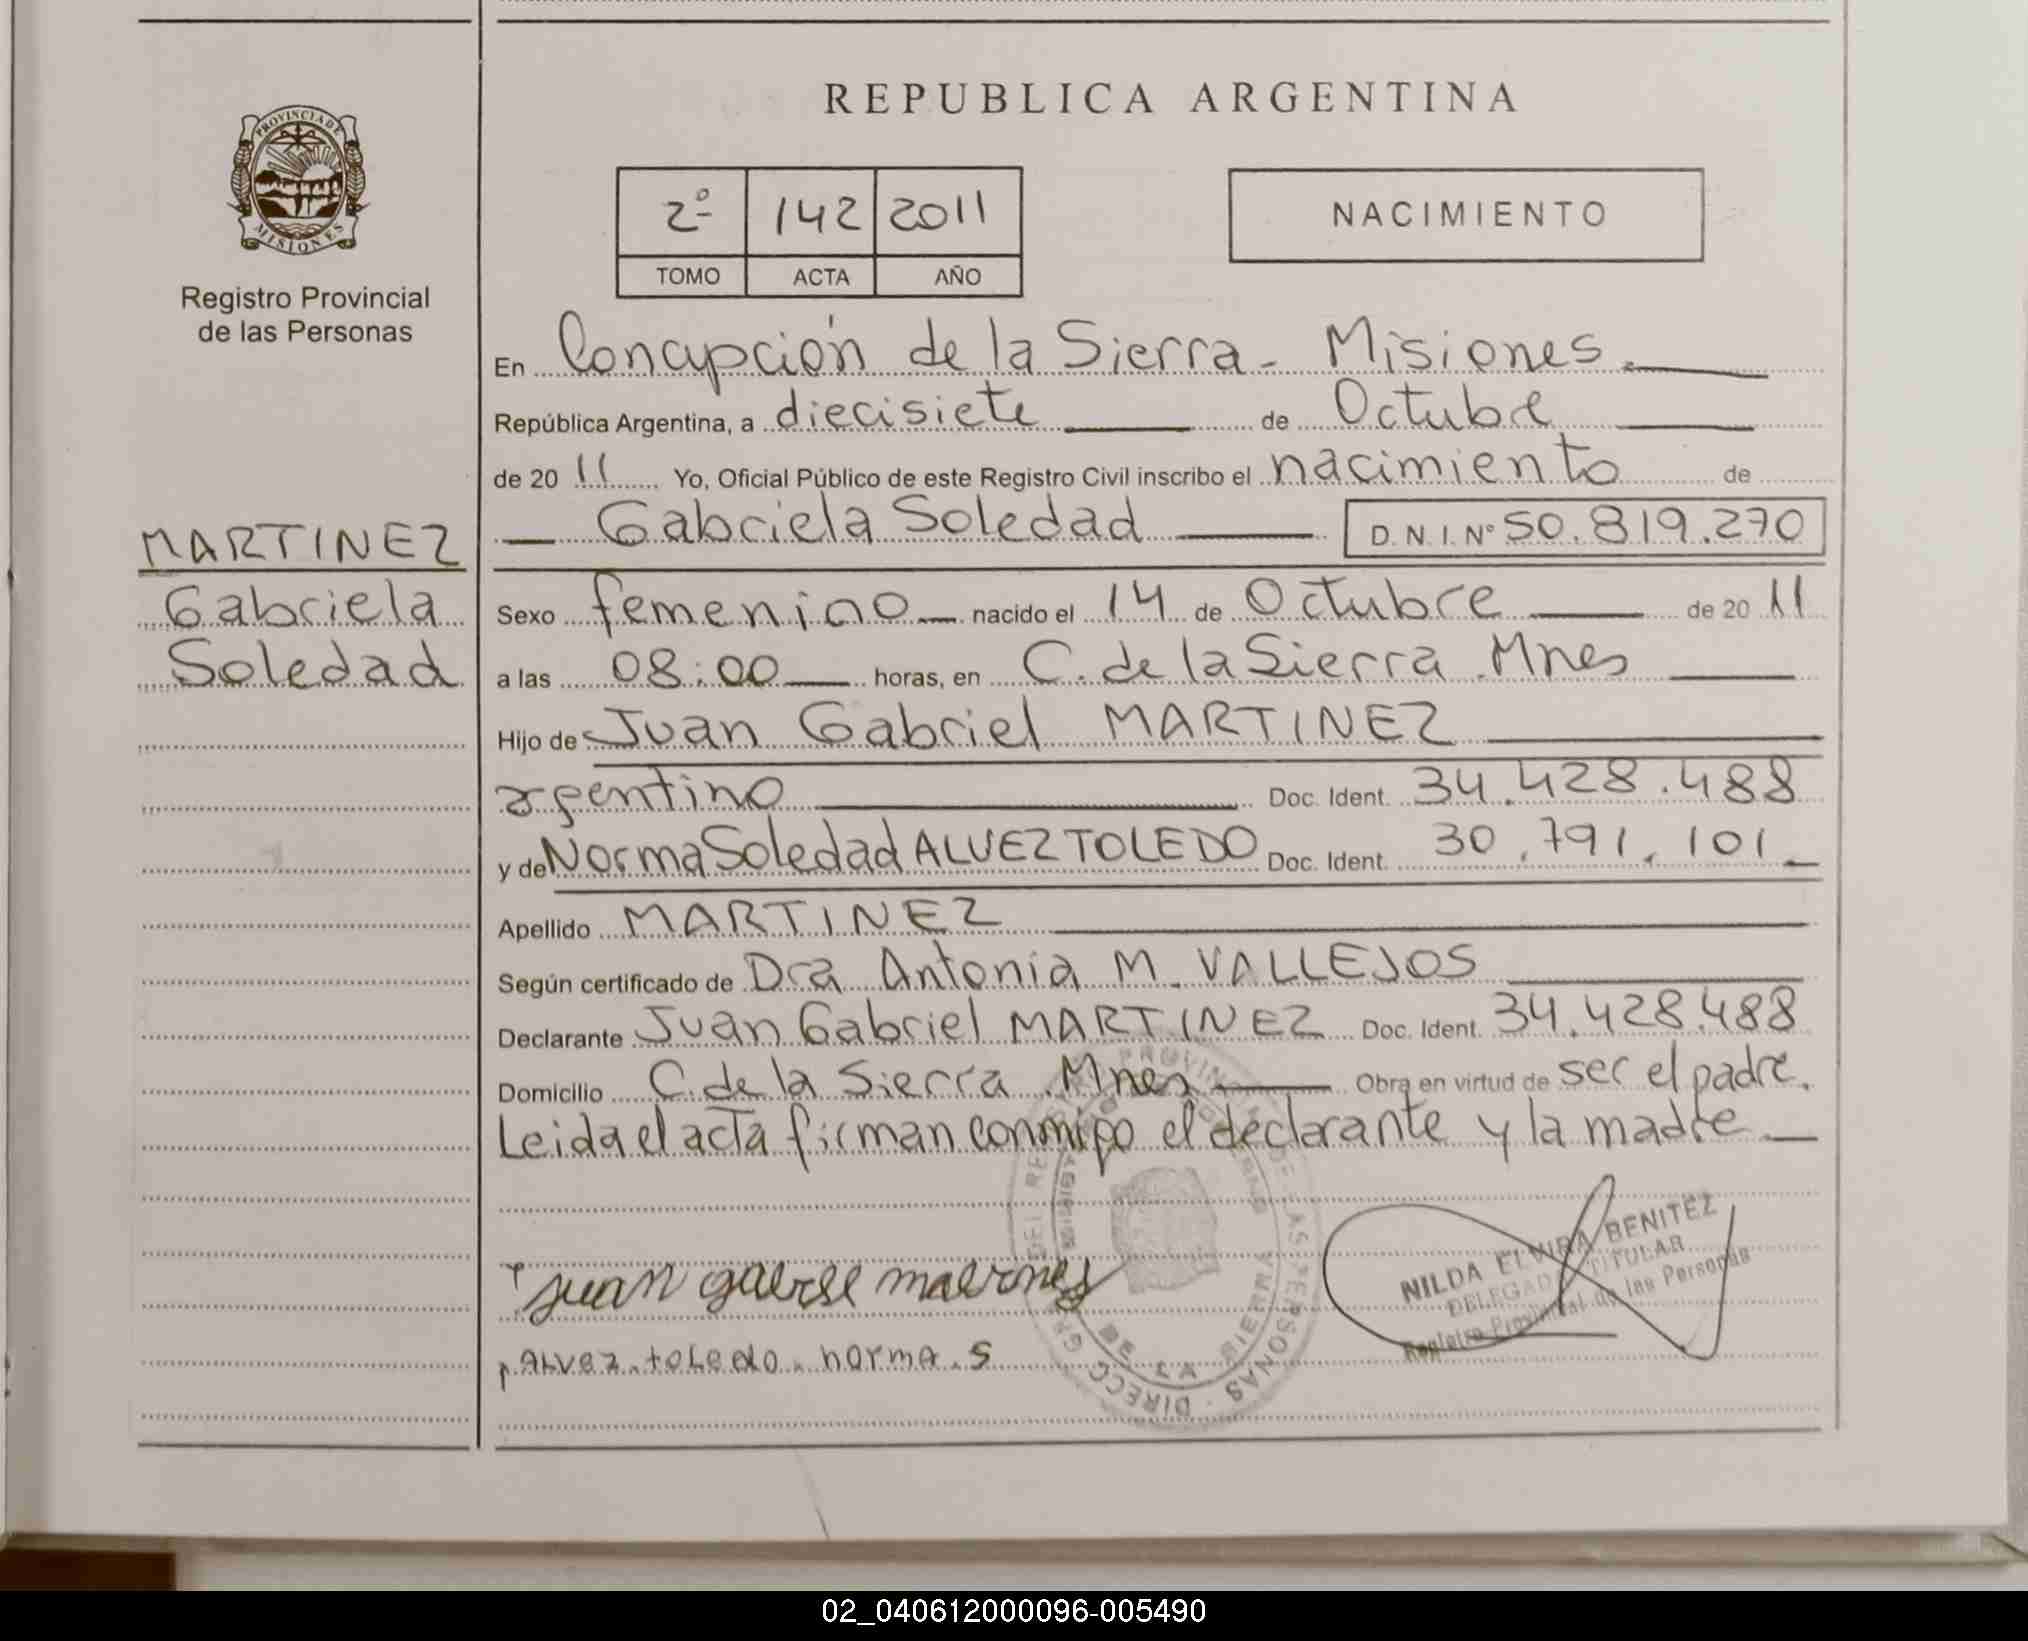 REPUBLICA ARGENTINA
PROVINCIA DE
MISIONES
Registro Provincial
de las Personas
2º 142 2011
TOMO ACTA AÑO
NACIMIENTO
En Concepción de la Sierra - Misiones
República Argentina, a diecisiete de Octubre
de 2011 Yo, Oficial Público de este Registro Civil inscribo el nacimiento de
Gabriela Soledad D.N.I. Nº 50.819.270
MARTINEZ
Gabriela
Soledad
Sexo femenino nacido el 14 de Octubre de 2011
a las 08:00 horas, en C. de la Sierra Mnes
Hijo de Juan Gabriel MARTINEZ
argentino Doc. Ident. 34.428.488
y de Norma Soledad ALVEZ TOLEDO Doc. Ident. 30.791.101
Apellido MARTINEZ
Según certificado de Dra Antonia M. VALLEJOS
Declarante Juan Gabriel MARTINEZ Doc. Ident. 34.428.488
Domicilio C. de la Sierra Mnes Obra en virtud de ser el padre.
Leida el acta firman conmigo el declarante y la madre
juan
ALVEZ toLedo norma S
NILDA ELVIRA BENITEZ
DELEGADA TITULAR
Registro Provincial de las Personas
DE LA SIERRA
02_040612000096-005490